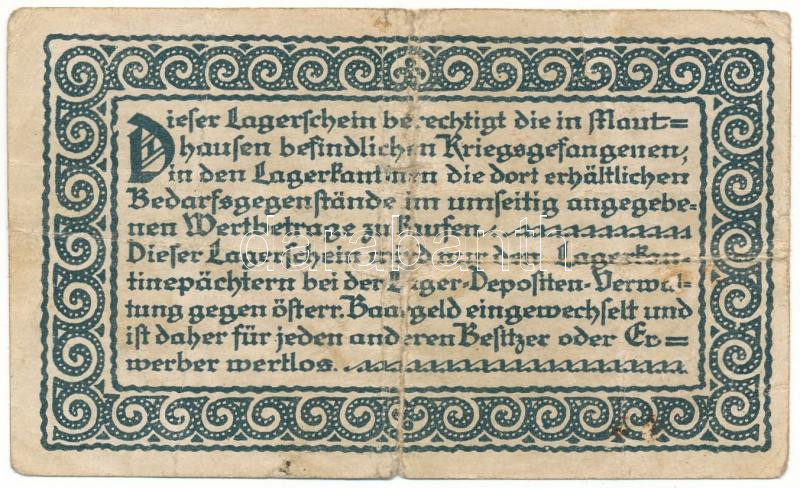 Dieser Lagerschein berechtigt die in Maut=
hausen befindlichen Kriegsgefangenen,
in den Lagerkantinen die dort erhältlichen
Bedarfsgegenstände im umseitig angegebe-
nen Wertbetrage zu kaufen.
Dieser Lagerschein wird nur den Lagerkan-
tinepächtern bei der Lager-Depositen-Verwal-
tung gegen österr. Baargeld eingewechselt und
ist daher für jeden anderen Besitzer oder Er=
werber wertlos.
darabanth